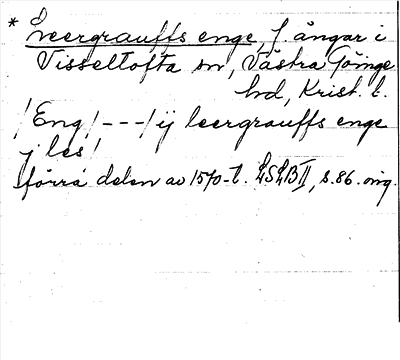 * Leergrauffs enge, f. ängar i
Visseltofta sn, Västra Göinge
hd, Krist. l.
/Eng/---/ij leergrauffs enge
j les/
förra delen av 1570-t. LSLB II, s. 86. orig.